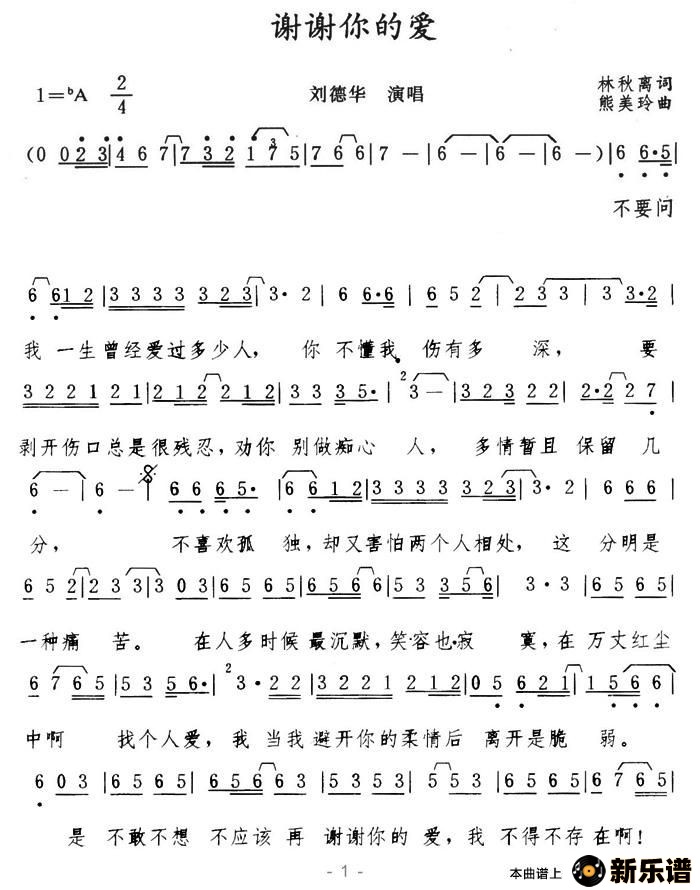 谢谢你的爱
1=ᵇA 2/4 刘德华 演唱 林秋离词
熊美玲曲
(0 0 2 3 | 4 6 7 | 7 3 2 1 7 5 | 7 6 6 | 7 — | 6 — | 6 — | 6 — ) | 6 6·5 |
不要问
6 6 1 2 | 3 3 3 3 3 2 3 | 3· 2 | 6 6·6 | 6 5 2 | 2 3 3 | 3 3·2 |
我 一生曾经爱过多少人， 你 不懂我 伤有多 深， 要
3 2 2 1 2 1 | 2 1 2 2 1 2 | 3 3 5· | ²3 — | 3 2 3 2 2 | 2·2 2 7 |
剥开伤口总是很残忍，劝你 别做痴心 人， 多情暂且 保留 几
6 — | 6 — | 6 6 6 5· | 6 6 1 2 | 3 3 3 3 3 2 3 | 3· 2 | 6 6 6 |
分， 不喜欢孤 独，却又害怕两个人相处， 这 分明是
6 5 2 | 2 3 3 | 3 0 3 | 6 5 6 5 | 6 5 6 6 | 5 3 3 5 6 | 3· 3 | 6 5 6 5 |
一种痛 苦。 在人多时候 最沉默，笑容也·寂 寞，在 万丈红尘
6 7 6 5 | 5 3 5 5 6· | ²3· 2 2 | 3 2 2 1 2 1 2 | 0 5 6 2 1 | 1 5 6 6 |
中啊 找个人爱，我 当我 避开你的柔情后 离开是脆 弱。
6 0 3 | 6 5 6 5 | 6 5 6 6 3 | 5 3 5 3 | 5 5 3 | 6 5 6 5 | 6 7 6 5 |
是 不敢不想 不应该再 谢谢你的 爱，我 不得不存在啊！
- 1 -
本曲谱上 新乐谱